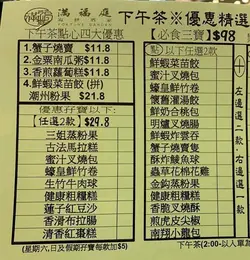 滿福庭
FORTUNE GARDEN
下午茶※優惠精選
下午茶點心四大優惠
1.蟹子燒賣 $11.8
2.金粟南瓜粥 $11.8
3.香煎蘿蔔糕 $11.8
4.鮮蝦菜苗餃(拼)
潮州粉果 $21.8
優惠孖寶以下:
【任選2款】$29.8
三姐蒸粉果
古法馬拉糕
蜜汁叉燒包
蠔皇鮮竹卷
生竹牛肉球
健康粗糧糕
蓮子紅豆沙
香滑布拉腸
清香紅棗糕
(星期六,日及假期孖寶每款加$5)
【必食三寶】$98
點以下任選2款
鮮蝦菜苗餃
蜜汁叉燒包
蠔皇鮮竹卷
懷舊灌湯餃
雪影叉燒包
蟹子燒賣皇
酥炸鯪魚球
蟲草花棉花雞
金鈎蒸粉果
健康粗糧糕
香脆叉燒酥
煎虎皮尖椒
南翔小籠包
十
左邊通選一款
下午茶(2:00-以人單